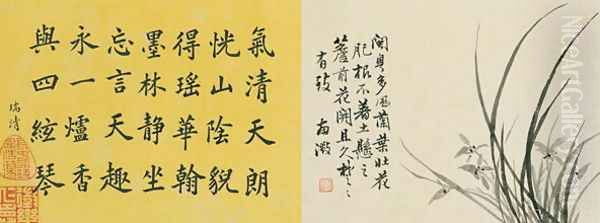 氣清天朗
恍山陰貌
得瑶華翰
墨林靜坐
忘言天趣
永一爐香
與四絃琴
瑞清
閩粵多風蘭葉壯花
肥根不著土懸之
簷前花開且久楚〻
有致
NiceArtGallery.com